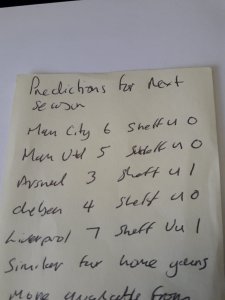 Predictions for next
season
Man City 6 Sheff U 0
Man Utd 5 Sheff U 0
Arsenal 3 Sheff U 1
chelsea 4 Sheff U 0
Liverpool 7 Sheff Uu 1
Similar for home games
More from